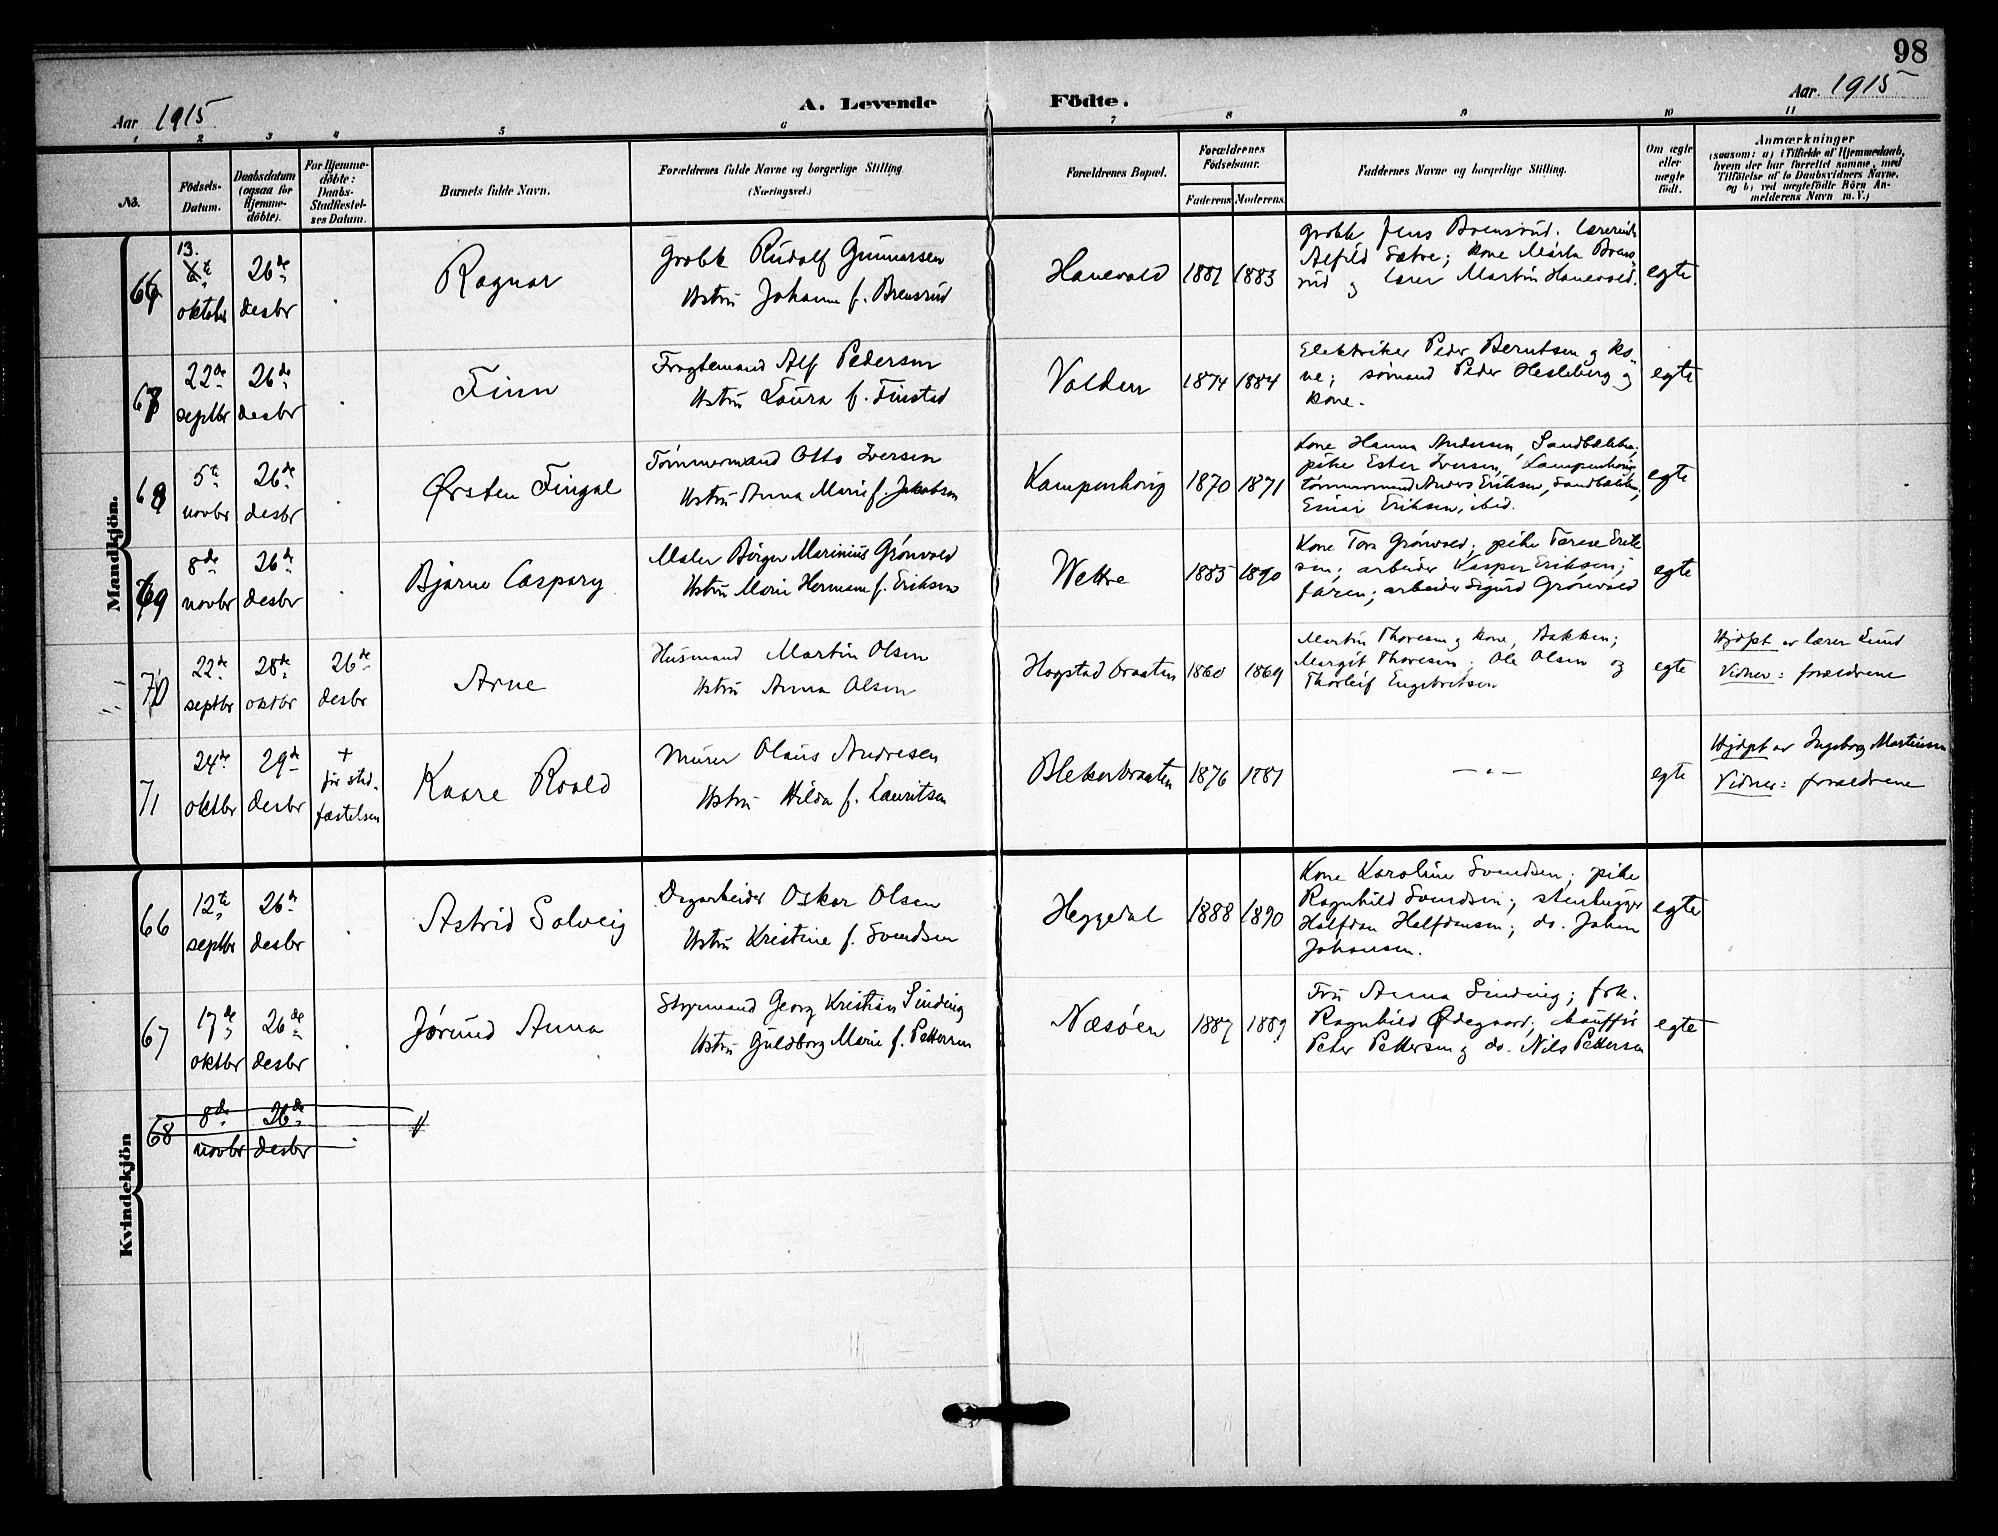 98
Aar 1915
A. Levende Födte.
Aar. 1915
1 2 3 4 5 6 7 8 9 10 11
No.
Födsels-
Datum.
Daabsdatum
(ogsaa for
Hjemme-
döbte).
For Hjemme-
döbte:
Daabs-
Stadfæstel-
ses Datum.
Barnets fulde Navn.
Forældrenes fulde Navne og borgerlige Stilling
(Næringsvei.)
Forældrenes Bopæl.
Forældrenes
Födselsaar.
Faderens Moderens
Faddernes Navne og borgerlige Stilling.
Om ægte
eller
uægte
födt.
Anmærkninger
(saasom: a) i Tilfælde af Hjemmedaab,
hvem der har forrettet samme, med
Tilföielse af to Daabsvidners Navne,
og b) ved uægtefödte Börn An-
melderens Navn m. V.)
Mandkjön.
66
13.
oktober
26de
desbr
Ragnar
Grobk Rudolf Gunnarsen
Hstru Johanne f. Brensrud
Hanevold
1881 1883
grobk Jens Brensrud. lærerinde
Alfild Sætre; kone Marta Brens-
rud og lærer Martin Hanevold.
egte
67
22de
septbr
26de
desbr
Finn
Fragtemand Alf Pedersen
Hstru Laura f. Finstad
Volden
1874 1884
Elektriker Peder Berntsen og ko-
ne; sømand Peder Hesleberg og
kone.
egte
68
5te
novbr
26de
desbr
Ørsten Fingal
Tømmermand Otto Iversen
Hstru Anna Marie f. Jakobsen
Kampenhaug
1870 1871
Kone Hanna Andersen, Sandbækken;
pike Ester Iversen, Kampenhaug
tømmermand Anders Eriksen, Sandbækken;
Einar Eriksen, ibid.
egte
69
8de
novbr
26de
desbr
Bjarne Caspary
Maler Birger Marinius Grönvold
Hstru Marie Hermane f. Eriksen
Wettre
1885 1890
Kone Tora Grönvold; pike Tærese Erik
sen; arbeider Kasper Eriksen;
faren; arbeider Sigurd Grönvold
egte
70
22de
septbr
28de
oktbr
26de
desbr
Arne
Husmand Martin Olsen
Hstru Anna Olsen
Hogstad braaten
1860 1869
Martin Thoresen og kone, Bakken;
Margit Thoresen; Ole Olsen og
Thorleif Engebretsen
egte
Hjdpt av lærer Lund
Vidner: forældrene
71
24de
oktbr
29de
desbr
+
før stad-
fæstelsen
Kaare Roald
Murer Olaus Andresen
Hstru Hilda f. Lauritsen
Blekerbraaten
1876 1881
egte
Hjdpt av Ingeborg Martinsen
Vidner: forældrene
Kvindekjön
66
12te
septbr
26de
desbr
Astrid Solveig
Dagarbeider Oskar Olsen
Hstru Kristine f. Svendsen
Heggedal
1888 1890
Kone Karoline Svendsen; pike
Ragnhild Svendsen; stenhugger
Halfdan Halfdansen; do. Johan
Johansen.
egte
67
17de
oktbr
26de
desbr
Jørund Anna
Styrmand Georg Kristian Sinding
Hstru Guldborg Marie f. Pettersen
Næsøen
1887 1889
Fru Anna Sinding; frk.
Ragnhild Ødegaard; chauffør
Peter Pettersen og do. Nils Pettersen
egte
68
8de
novbr
26de
desbr